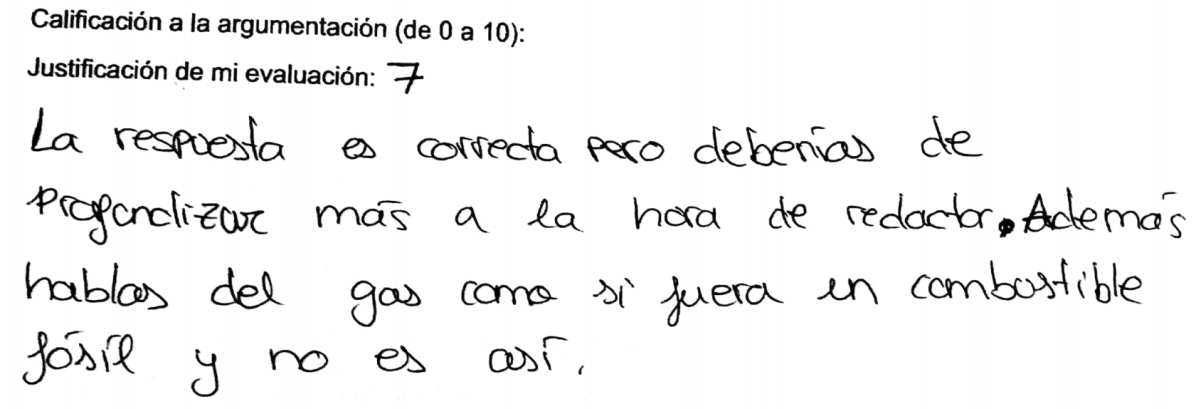 Calificación a la argumentación (de 0 a 10):
Justificación de mi evaluación: 7
La respuesta es correcta pero deberías de
profundizar más a la hora de redactar. Además
hablas del gas como si fuera un combustible
fósil y no es así.